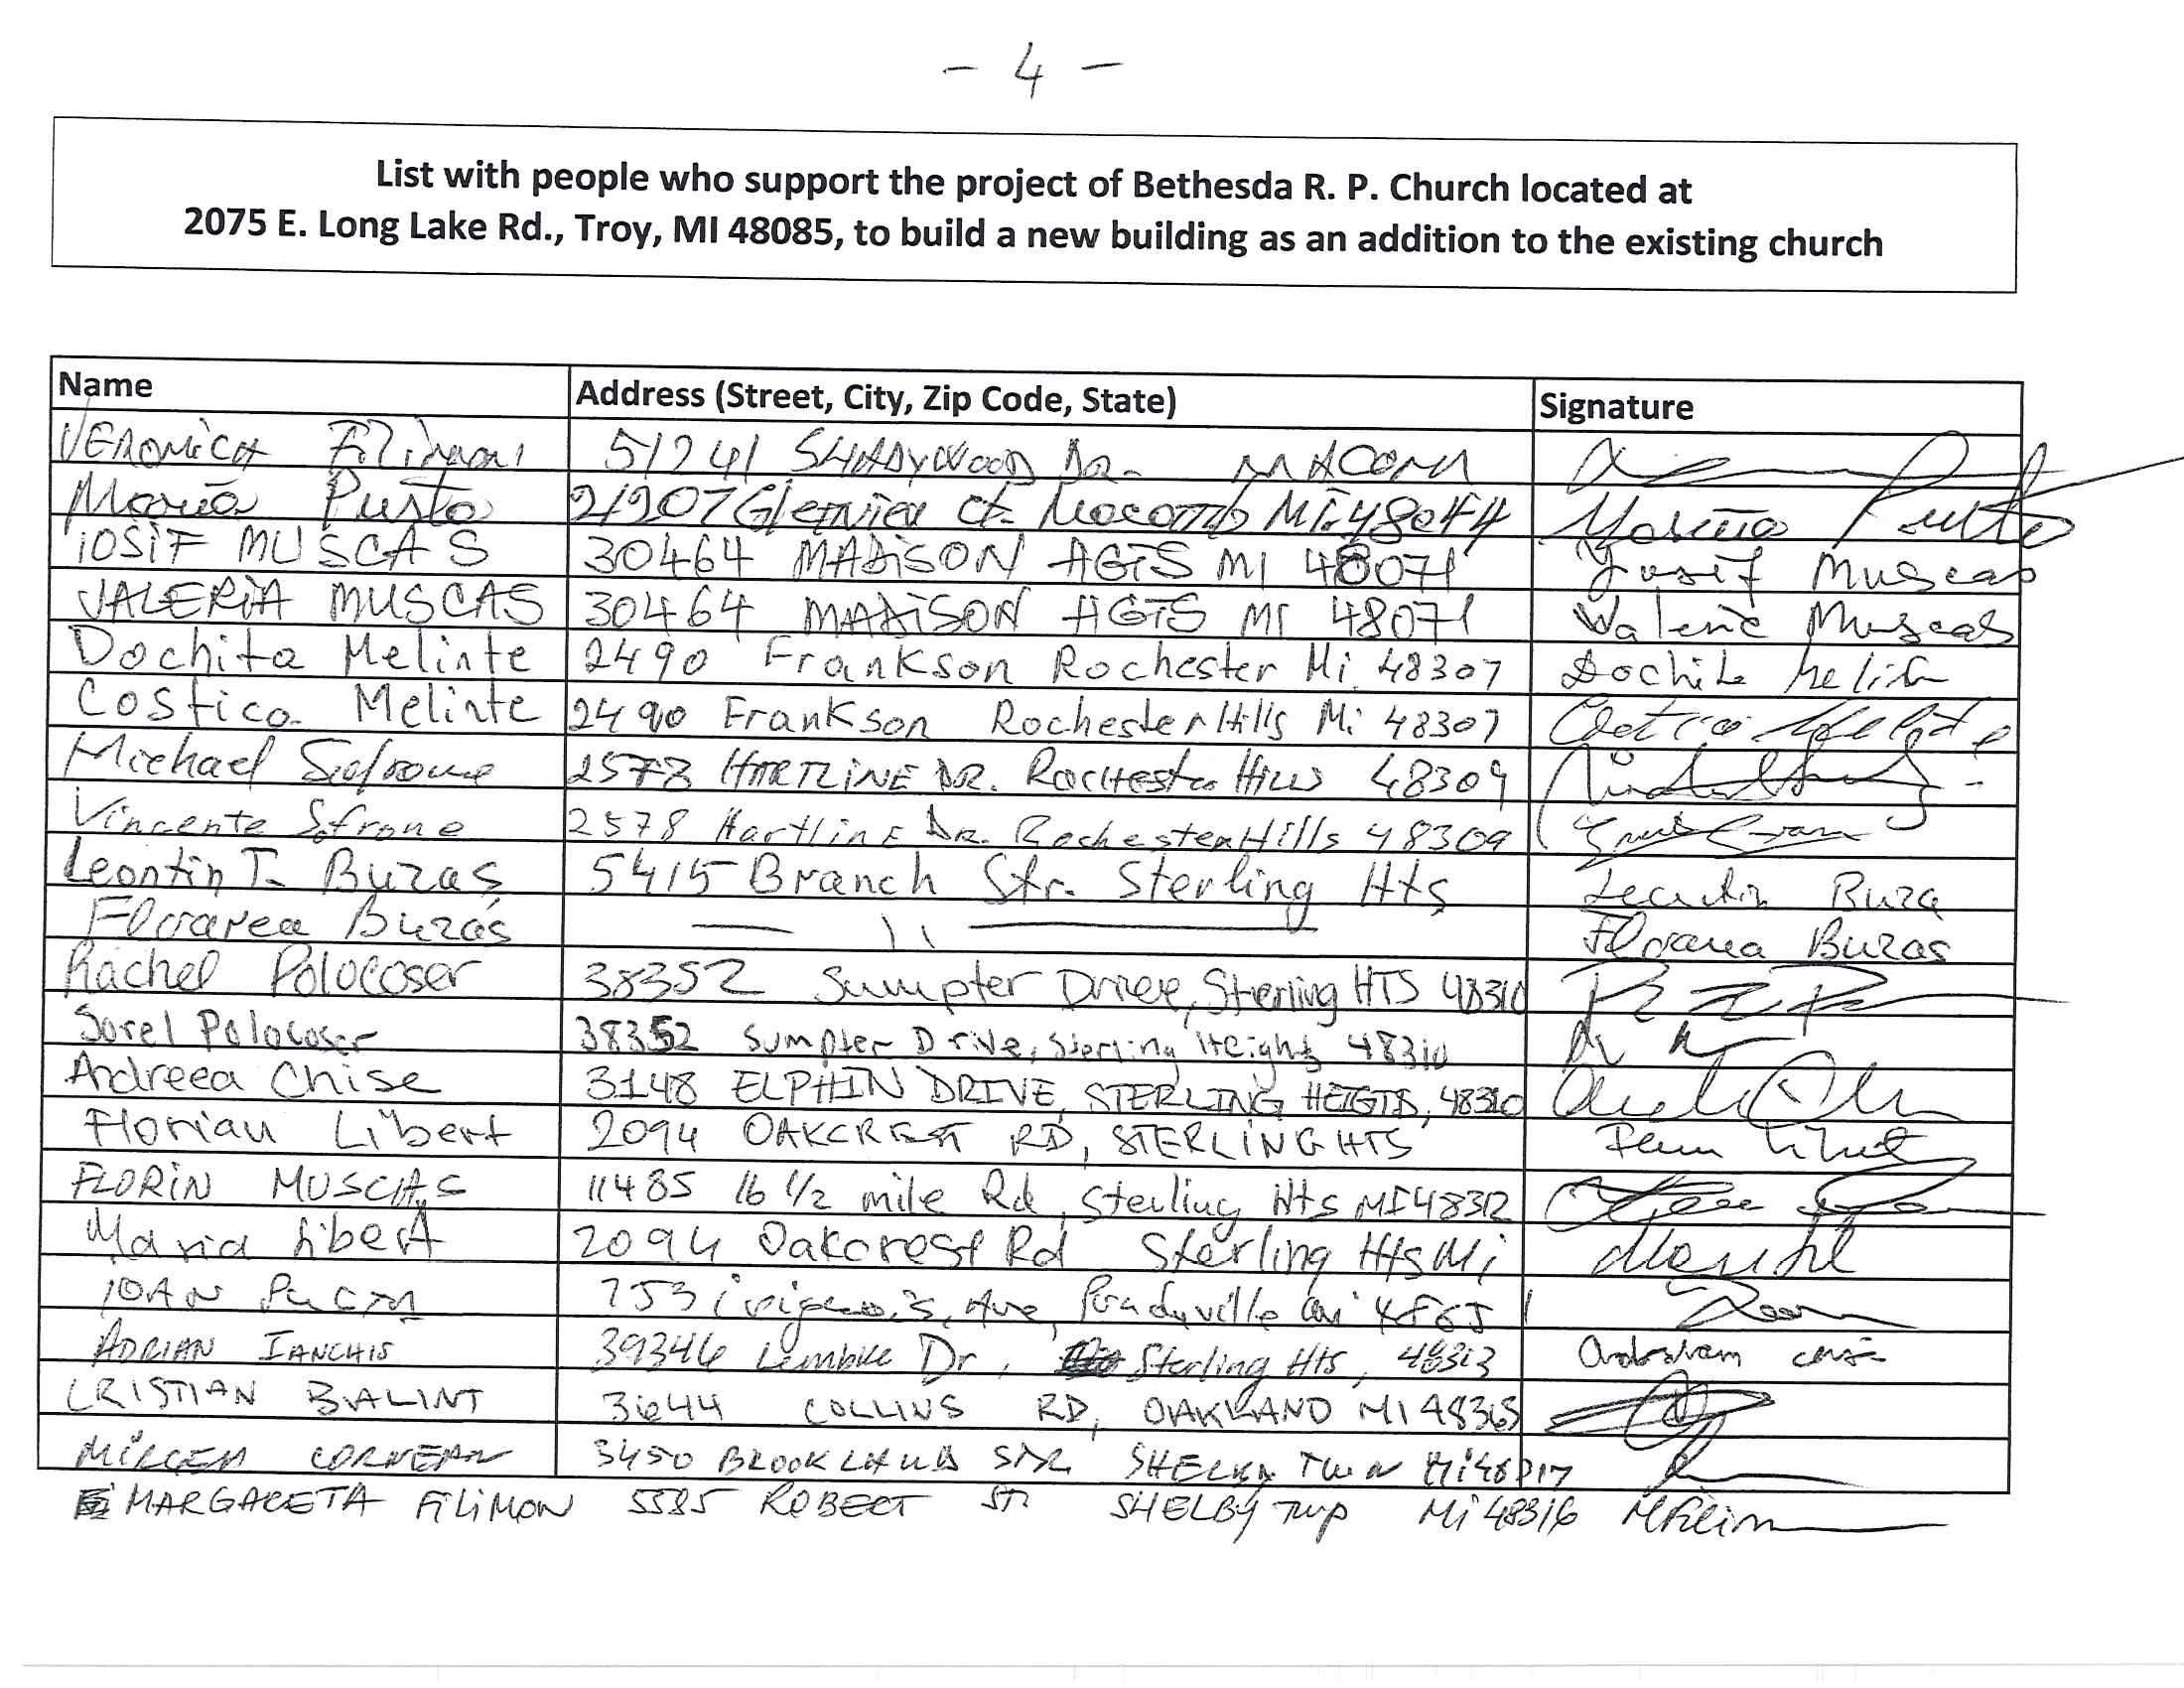 - 4 -
List with people who support the project of Bethesda R. P. Church located at
2075 E. Long Lake Rd., Troy, MI 48085, to build a new building as an addition to the existing church
Name Address (Street, City, Zip Code, State) Signature
VERONICA Filimon 51241 SHADYWOOD DR. MACOMB
Maria Pusta 21207 Glenview Ct. Macomb Mi. 48044 Maria Pusta
IOSIF MUSCAS 30464 MADISON HGTS MI 48071 Iosif Muscas
VALERIA MUSCAS 30464 MADISON HGTS MI 48071 Valeria Muscas
Dochita Melinte 2490 Frankson Rochester Mi. 48307 Dochita Melinte
Costica Melinte 2490 Frankson Rochester Hills Mi 48307 Costica Melinte
Michael Sofrone 2578 HARTLINE DR. Rochester Hills 48309
Vincente Sofrone 2578 Hartline DR. Rochester Hills 48309
Leontin T. Buzas 5415 Branch Str. Sterling Hts Leontin Buza
Floarea Buzas — 11 — Floarea Buzas
Rachel Polocoser 38352 Sumpter Drive, Sterling HTS 48310
Sorel Polocoser 38352 Sumpter Drive, Sterling Heights 48310
Andreea Chise 3148 ELPHIN DRIVE, STERLING HEIGTS, 48310
Florian Libert 2094 OAKCREST RD, STERLING HTS
FLORIN MUSCAS 11485 16 1/2 mile Rd, Sterling Hts MI 48312
Maria Libert 2094 Oakcrest Rd Sterling Hts Mi
IOAN 753 Ave,
ADRIAN IANCHIS 39346 Lembke Dr, Sterling Hts, 48313
CRISTIAN BALINT 3644 COLLINS RD, OAKLAND MI 48363
MIRCEA CORNEAN 3450 BROOKLAND STR SHELBY TWN Mi 48317
MARGARETA FILIMON 5585 ROBERT ST. SHELBY TWP Mi 48316 MFilimon